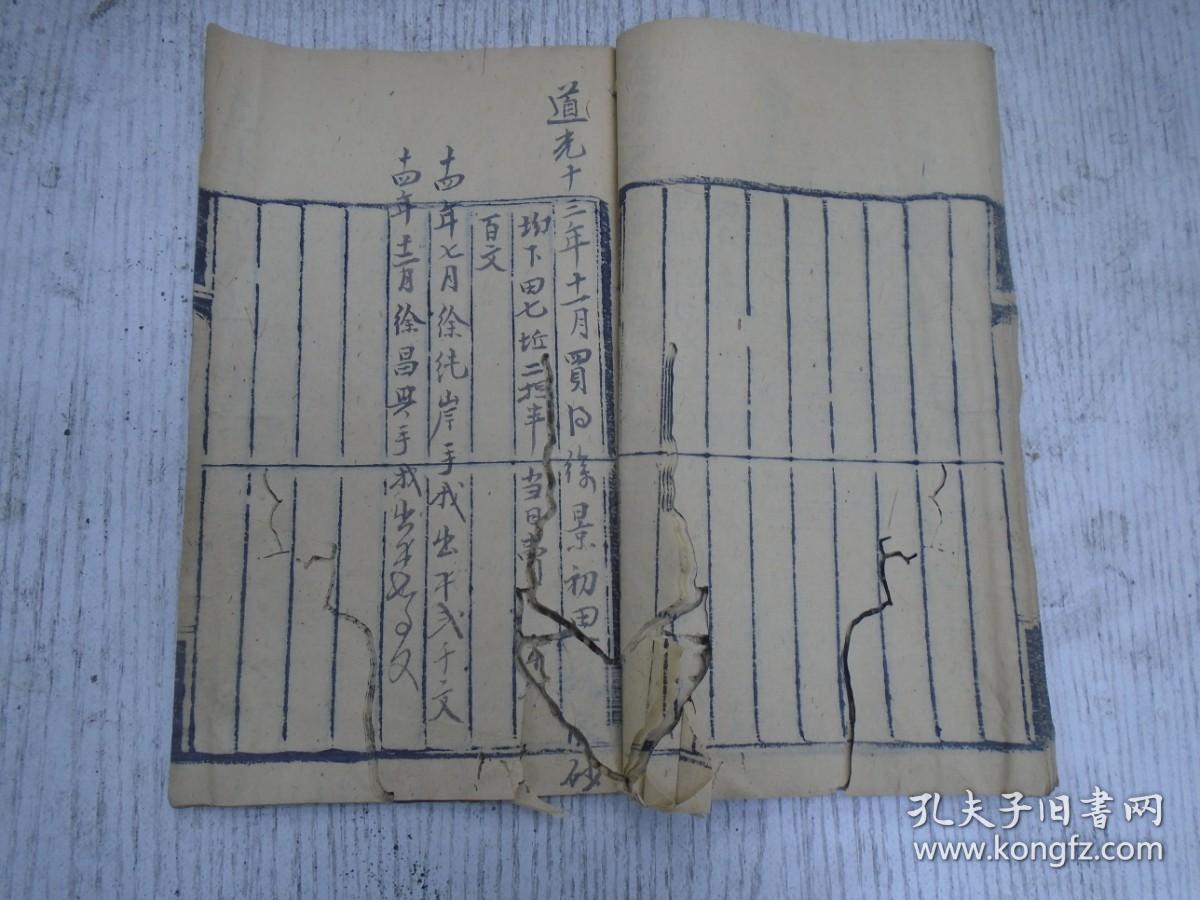 道光十三年十一月買得徐景初田 砂
坳下田七坵二担半 当日賣
百文
十四年七月徐純岸手我出 弍千文
十四年十二月徐昌興手我出 百文
孔夫子旧书网
www.kongfz.com